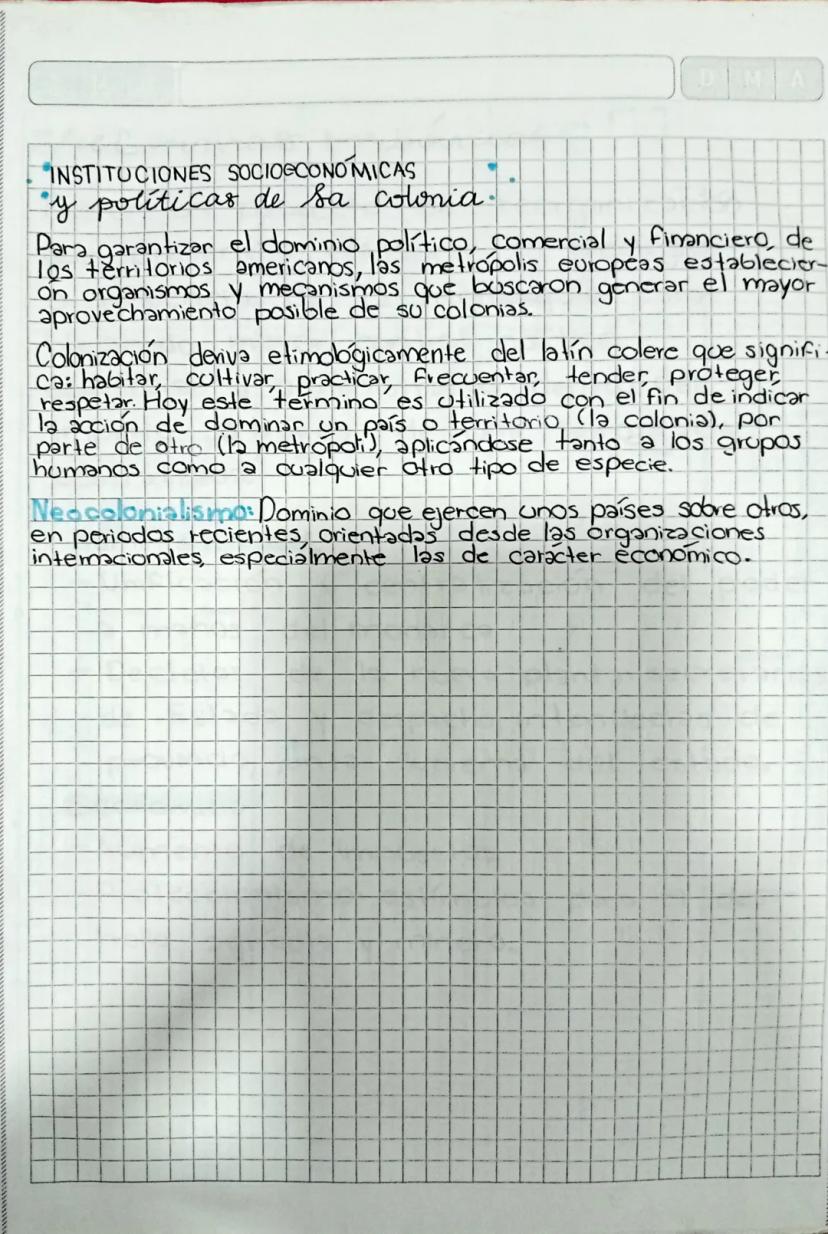 INSTITUCIONES SOCIOECONÓMICAS
y políticas de la colonia.
Para garantizar el dominio político, comercial y financiero, de
los territorios americanos, las metrópolis europeas establecier-
on organismos y mecanismos que buscaron generar el mayor
aprovechamiento posible de su colonias.
Colonización deriva etimológicamente del latín colere que signifi-
ca: habitar, cultivar, practicar, frecuentar, tender, proteger,
respetar. Hoy este término es utilizado con el fin de indicar
la acción de dominar un país o territorio (la colonia), por
parte de otro (la metrópoli), aplicándose tanto a los grupos
humanos como a cualquier otro tipo de especie.
Neocolonialismo: Dominio que ejercen unos países sobre otros,
en periodos recientes, orientadas desde las organizaciones
internacionales, especiálmente las de carácter económico.